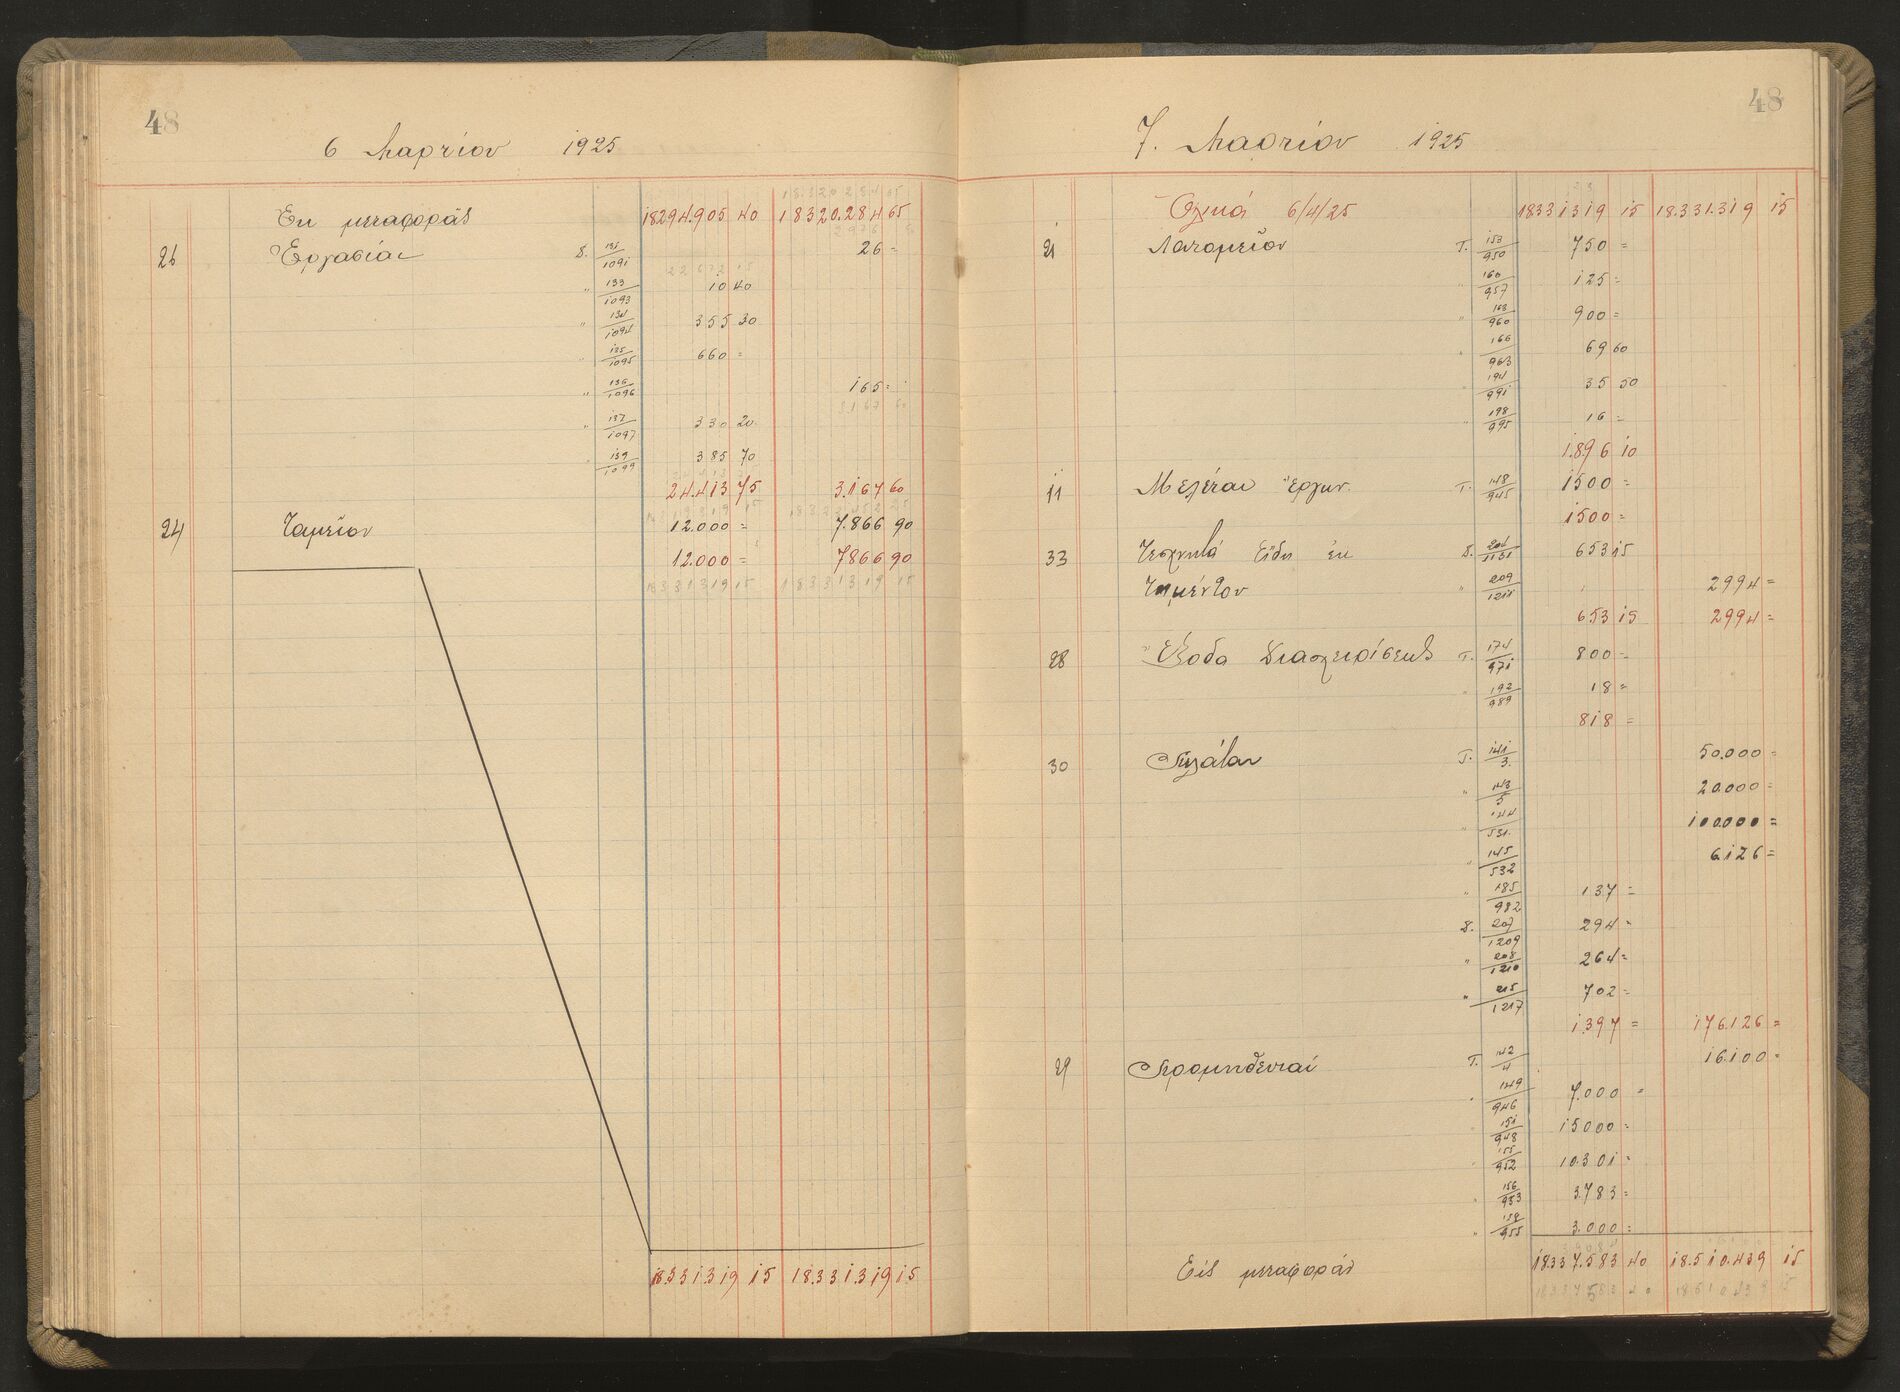 48
6 Μαρτίου 1925
Εκ μεταφοράς 18294.905 40 18320.284 65
26 Εργασίαι Σ. 131/1091 26 =
" 133/1093 10 40
" 134/1094 355 30
" 135/1095 660 =
" 136/1096 165 =
" 137/1097 330 20
139/1099 385 70
24.413 75 3.167 60
24 Ταμείον 12.000 = 7.866 90
12.000 = 7866 90
18331319 15 18331319 15
18331319 15 18.331.319 15
48
7. Μαρτίου 1925
Ολικά 6/4/25 18331319 15 18.331.319 15
21 Λατομείον Τ. 153/950 750 =
" 160/957 125 =
" 163/960 900 =
" 166/963 69 60
" 194/991 35 50
" 198/995 16 =
1.896 10
11 Μελέται Έργων. Τ. 148/945 1500 =
1500 =
33 Τεχνητά Είδη εκ Σ. 204/1131 653 15
Τσιμέντου " 209/1211 2994 =
653 15 2994 =
28 Έξοδα Διαχειρίσεως Τ. 174/971 800 =
" 192/989 18 =
818 =
30 Πελάται Τ. 141/3. 50.000 =
" 143/5 20.000 =
" 144/531. 100.000 =
" 145/532 6.126 =
" 185/982 137 =
Σ. 207/1209 294 =
" 208/1210 264 =
" 215/1217 702 =
1.397 = 176.126 =
29 Προμηθευταί Τ. 142/4 16.100 =
" 149/946 7.000 =
" 151/948 15000 =
" 155/952 10.301 =
" 156/953 3.783 =
" 158/955 3.000 =
Εις μεταφοράν 18.337.583 40 18.510.439 15
18337583 40 18510439 15